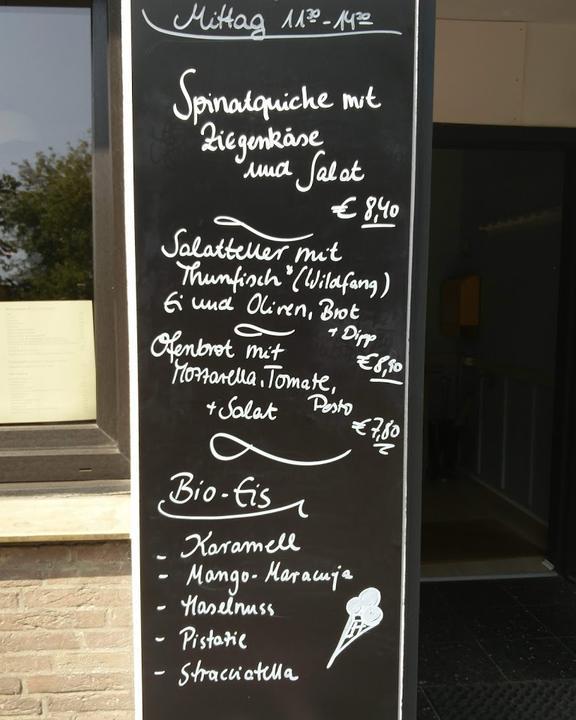 Mittag 11³⁰-14³⁰
Spinatquiche mit
Ziegenkäse
und Salat
€ 8,40
Salatteller mit
Thunfisch* (Wildfang)
Ei und Oliven, Brot
+ Dipp
€ 8,90
Ofenbrot mit
Mozzarella, Tomate,
Pesto
+ Salat
€ 7,80
Bio-Eis
- Karamell
- Mango-Maracuja
- Haselnuss
- Pistazie
- Stracciatella